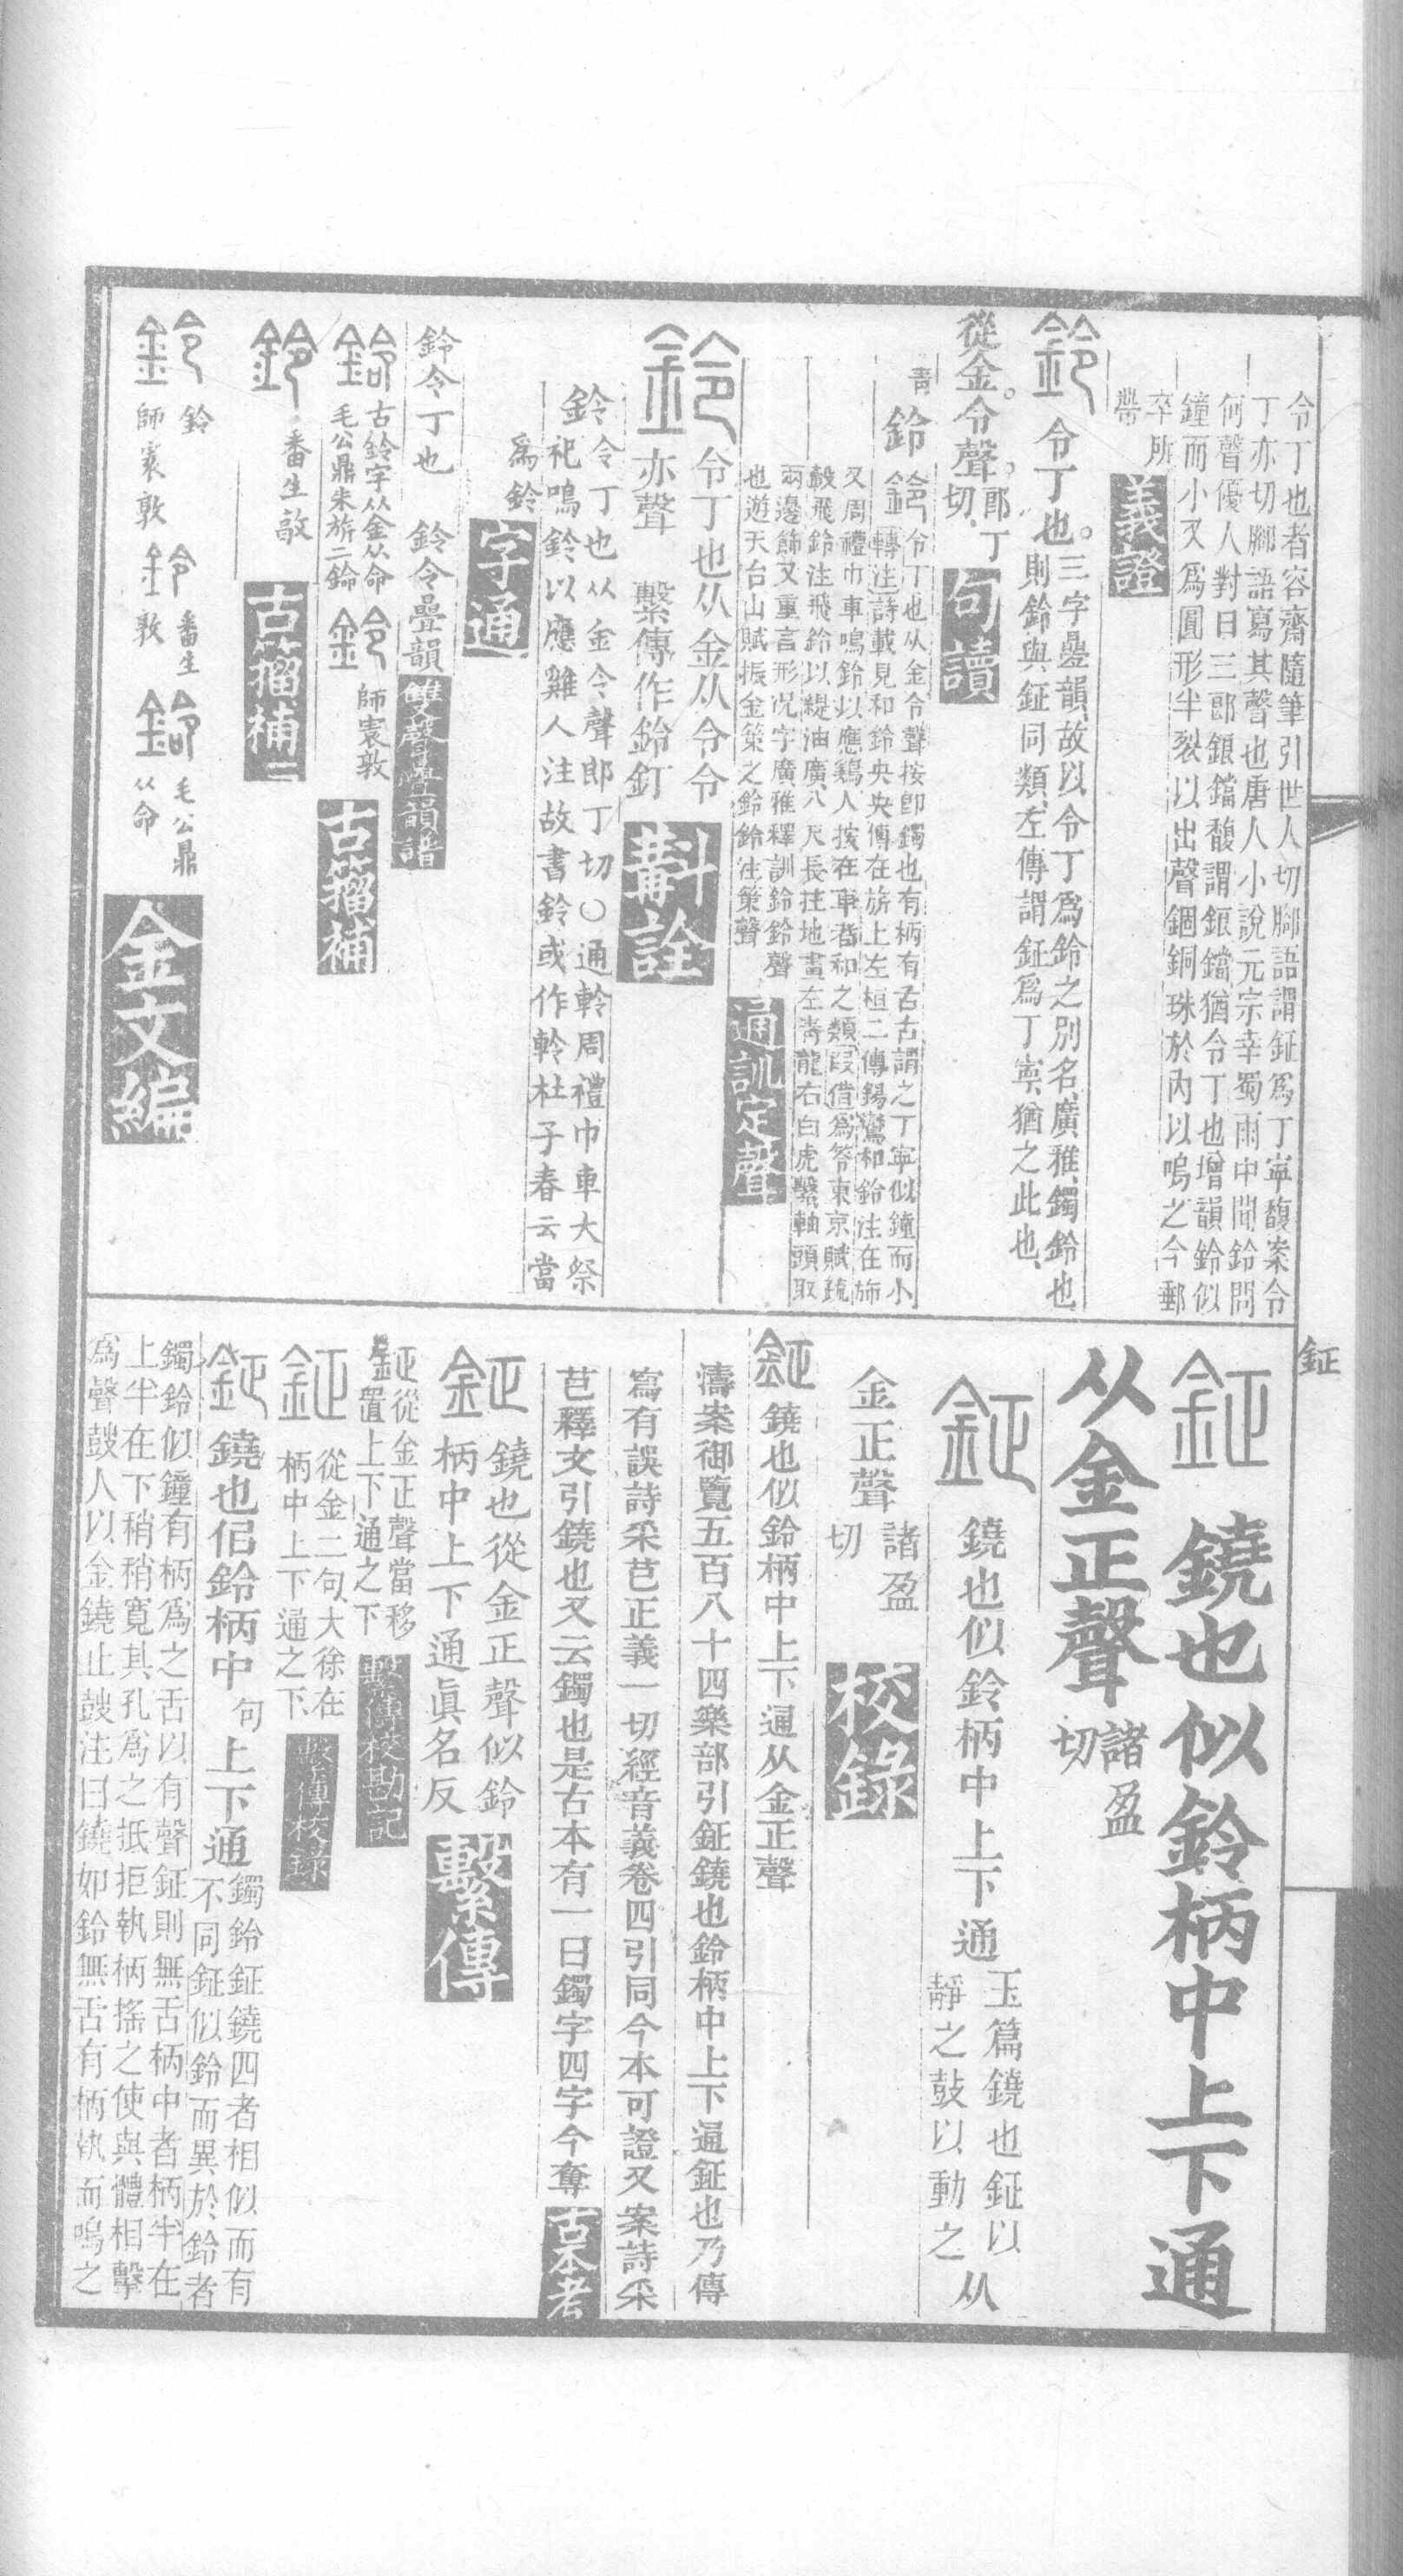 令丁也者容齋隨筆引世人切腳語謂鉦爲丁寧馥案令
丁亦切腳語寫其聲也唐人小說元宗幸蜀雨中聞鈴問
何聲優人對曰三郎鋃鐺馥謂鋃鐺猶令丁也增韻鈴似
鐘而小又爲圓形半裂以出聲錮銅珠於內以鳴之今郵
卒所
帶
義證
鈴令丁也。三字疊韻故以令丁爲鈴之別名廣雅鐲鈴也
則鈴與鉦同類左傳謂鉦爲丁寧猶之此也
從金。令聲。郎丁
切
句讀
青
鈴
鈴令丁也从金令聲按卽鐲也有柄有舌古謂之丁寧似鐘而小
轉注詩載見和鈴央央傳在旂上左桓二傳鍚鸞和鈴注在旂
又周禮巾車鳴鈴以應鷄人按在車者和之類叚借爲笭東京賦疏
轂飛鈴注飛鈴以緹油廣八尺長拄地畫左青龍右白虎繫軸頭取
兩邊飾又重言形況字廣雅釋訓鈴鈴聲
也遊天台山賦振金策之鈴鈴注策聲
通訓定聲
鈴令丁也从金从令令
亦聲 繫傳作鈴釘
斠詮
鈴令丁也从金令聲郎丁切○通軨周禮巾車大祭
祀鳴鈴以應雞人注故書鈴或作軨杜子春云當
爲鈴
字通
鈴令丁也 鈴令疊韻
雙聲疊韻譜
鈴古鈴字从金从命
毛公鼎朱旂二鈴
鈴師寰敦
古籀補
鈴番生敦
古籀補二
鈴鈴
師寰敦
鈴番生
敦
鈴毛公鼎
从命
金文編
鉦
鉦鐃也似鈴柄中上下通
从金正聲諸盈
切
鉦鐃也似鈴柄中上下通玉篇鐃也鉦以
靜之鼓以動之从
金正聲諸盈
切
校錄
鉦鐃也似鈴柄中上下通从金正聲
濤案御覽五百八十四樂部引鉦鐃也鈴柄中上下通鉦也乃傳
寫有誤詩采芑正義一切經音義卷四引同今本可證又案詩采
芑釋文引鐃也又云鐲也是古本有一曰鐲字四字今奪
古本考
鉦鐃也從金正聲似鈴
柄中上下通眞名反
繫傳
鉦從金正聲當移
置上下通之下
繫傳校勘記
鉦從金二句大徐在
柄中上下通之下
繫傳校錄
鉦鐃也佀鈴柄中句上下通鐲鈴鉦鐃四者相似而有
不同鉦似鈴而異於鈴者
鐲鈴似鐘有柄爲之舌以有聲鉦則無舌柄中者柄半在
上半在下稍稍寬其孔爲之抵拒執柄搖之使與體相擊
爲聲鼓人以金鐃止鼓注曰鐃如鈴無舌有柄執而鳴之